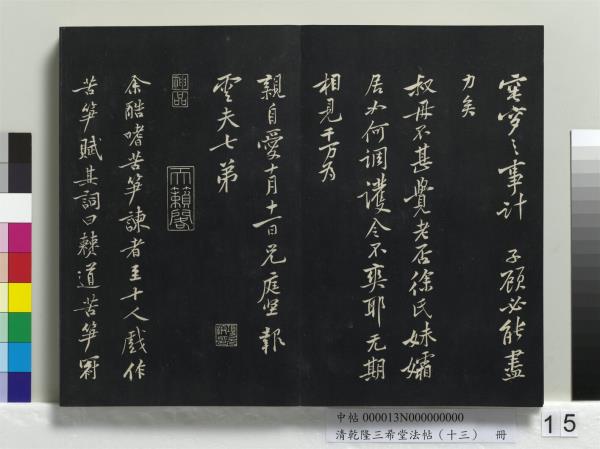 窀穸之事計 子顧必能盡
力矣
叔母不甚覺老否徐氏妹孀
居如何調護令不爽耶 无期
相見千万為
親自愛十月十一日兄庭堅報
雲夫七弟
神品
天籟閣
余酷嗜苦笋諫者至十人戲作
苦笋賦其詞曰僰道苦笋冠
中帖 000013N000000000
清乾隆三希堂法帖（十三） 冊
15